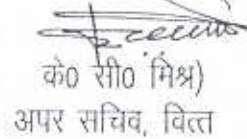 के0 सी0 मिश्र)
अपर सचिव, वित्त